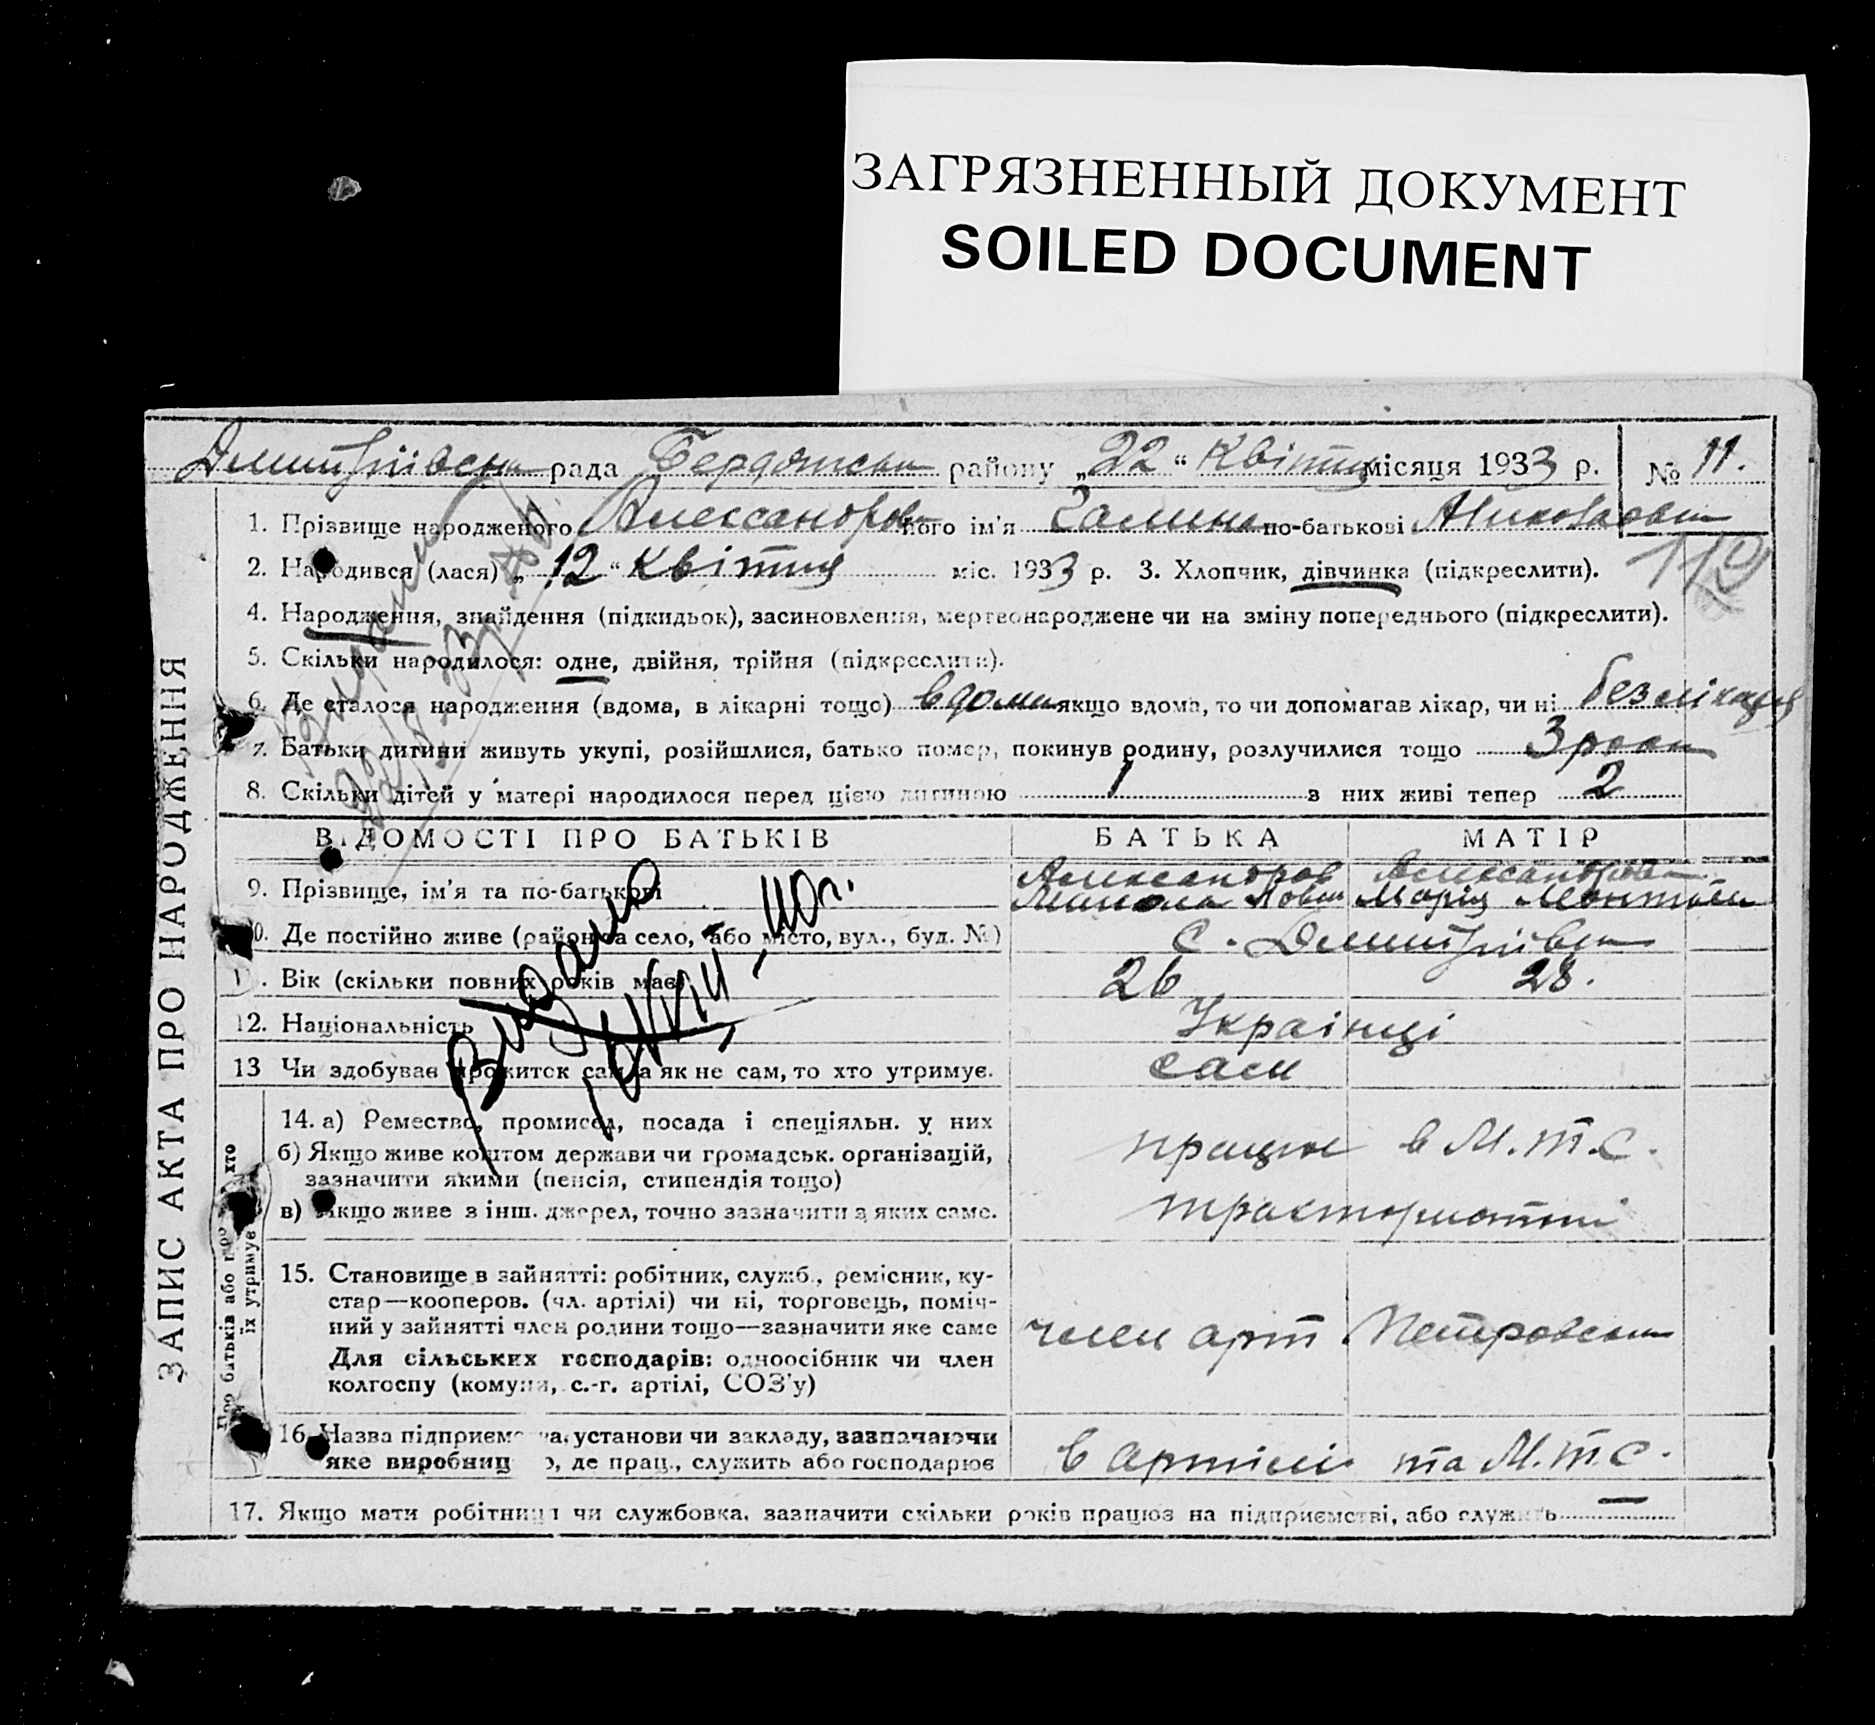 ЗАГРЯЗНЕННЫЙ ДОКУМЕНТ
SOILED DOCUMENT
рада Бердянськ району „22“ Квітня місяця 1933 р. № 11.
1. Прізвище народженого Александрова його ім'я Галина по-батькові
2. Народився (лася) „12“ Квітня міс. 1933 р. 3. Хлопчик, дівчинка (підкреслити).
119
4. Народження, знайдення (підкидьок), засиновлення, мертвонароджене чи на зміну попереднього (підкреслити).
5. Скільки народилося: одне, двійня, трійня (підкреслити).
6. Де сталося народження (вдома, в лікарні тощо) вдома якщо вдома, то чи допомагав лікар, чи ні без
7. Батьки дитини живуть укупі, розійшлися, батько помер, покинув родину, розлучилися тощо 3
8. Скільки дітей у матері народилося перед цією дитиною 1 з них живі тепер 2
ВІДОМОСТІ ПРО БАТЬКІВ БАТЬКА МАТІР
9. Прізвище, ім'я та по-батькові Александров Александрова
Микола Марія
10. Де постійно живе (район та село, або місто, вул., буд. №) с.
11. Вік (скільки повних років має) 26 28.
12. Національність Украінці
13 Чи здобуває прожиток сам, а як не сам, то хто утримує. сам
14. а) Ремество, промисел, посада і спеціяльн. у них
б) Якщо живе коштом держави чи громадськ. організацій,
зазначити якими (пенсія, стипендія тощо)
в) Якщо живе з інш. джерел, точно зазначити з яких саме.
працює в М.Т.С.
15. Становище в зайнятті: робітник, служб., ремісник, ку-
стар—кооперов. (чл. артілі) чи ні, торговець, поміч-
ний у зайнятті член родини тощо—зазначити яке саме
Для сільських господарів: одноосібник чи член
колгоспу (комуни, с.-г. артілі, СОЗ'у)
член арт Петровськ
16. Назва підприємства, установи чи закладу, зазначаючи
яке виробниц о, де прац., служить або господарює
в артілі та М.Т.С.
17. Якщо мати робітниця чи службовка, зазначити скільки років працює на підприємстві, або служить —
ЗАПИС АКТА ПРО НАРОДЖЕННЯ
Про батьків або про хто
їх утримує
Видано